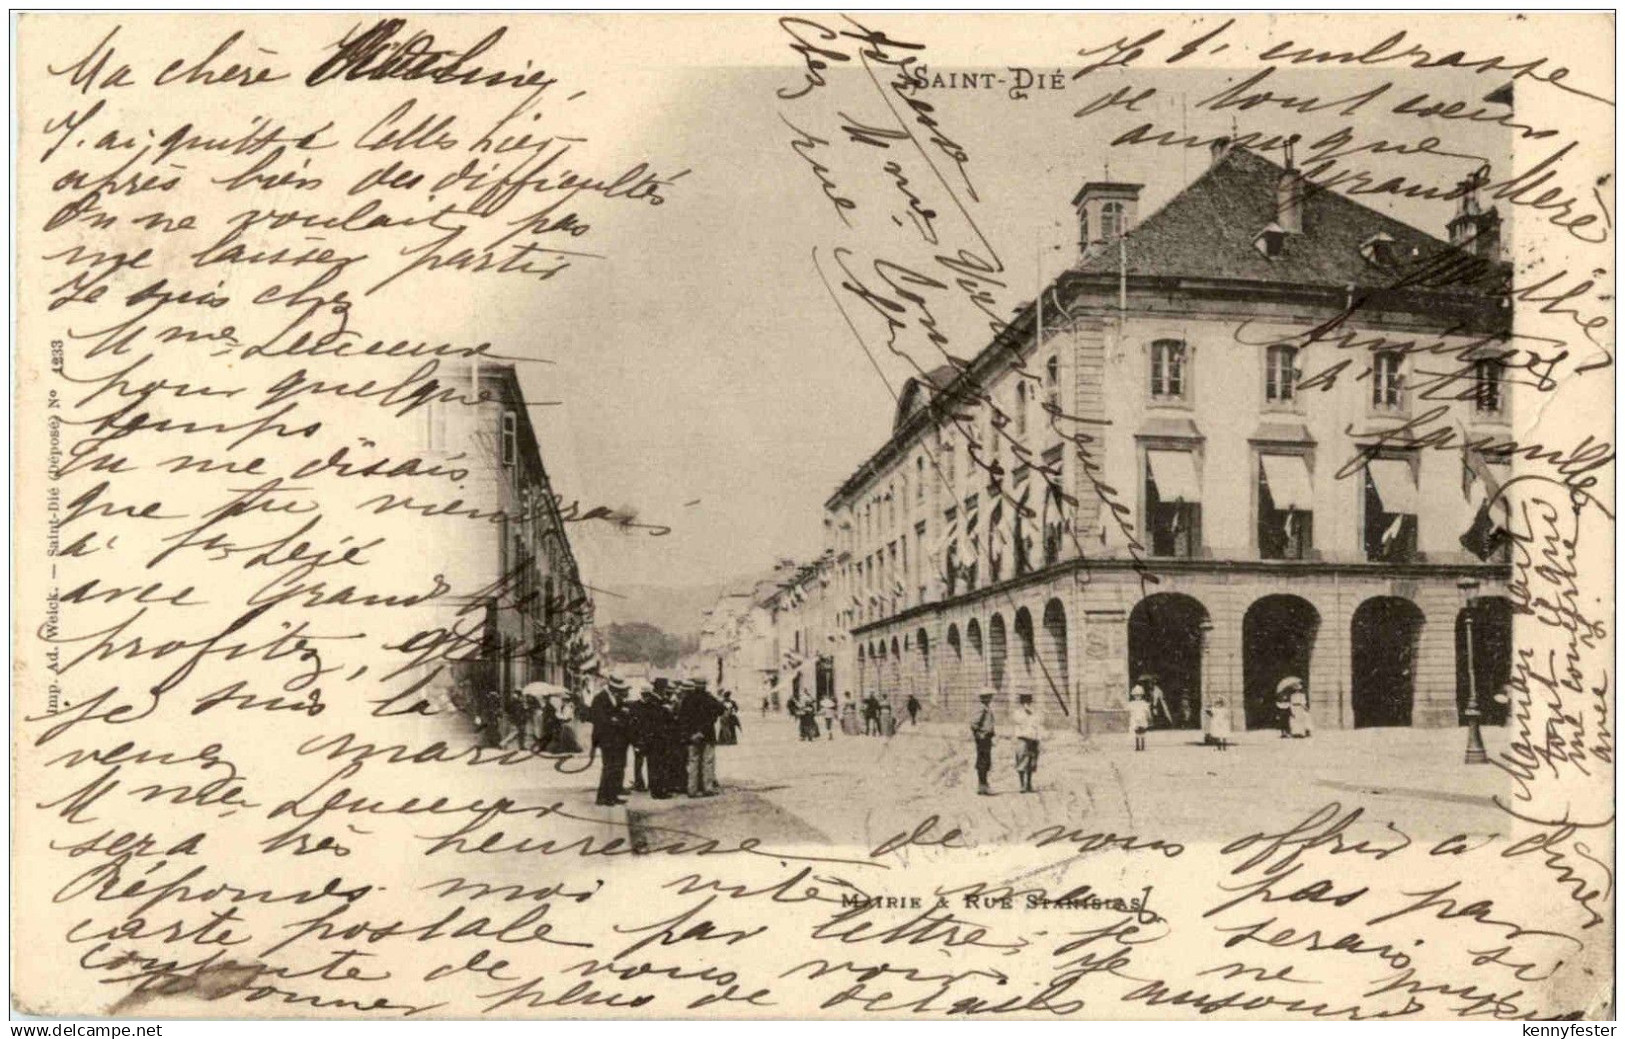 SAINT-DIÉ
Ma chère
J'ai quitté Celles hier
après bien des difficultés
On ne voulait pas
me laisser partir
Je suis chez
Mme Lecueur
pour quelque
temps
Tu me disais
que tu viendrais
à St Dié
avec Grand Mère
profitez, que
je suis la
venez mardi
Mme Lecueur
sera très heureuse de vous offrir à dîner
Réponds moi vite mais pas par
carte postale par lettre; je serais si
contente de vous voir. Je ne puis
te donner plus de détails aujourd'hui
Je t'embrasse
de tout cœur
ainsi que
Grand Mère
Amitiés
à ta
famille
Maman part
tout
avec
Adresse
Chez Mme Lecueur
rue
MAIRIE & RUE STANISLAS
Imp. Ad. Weick. — Saint-Dié (Déposé) No 4233
kennyfester